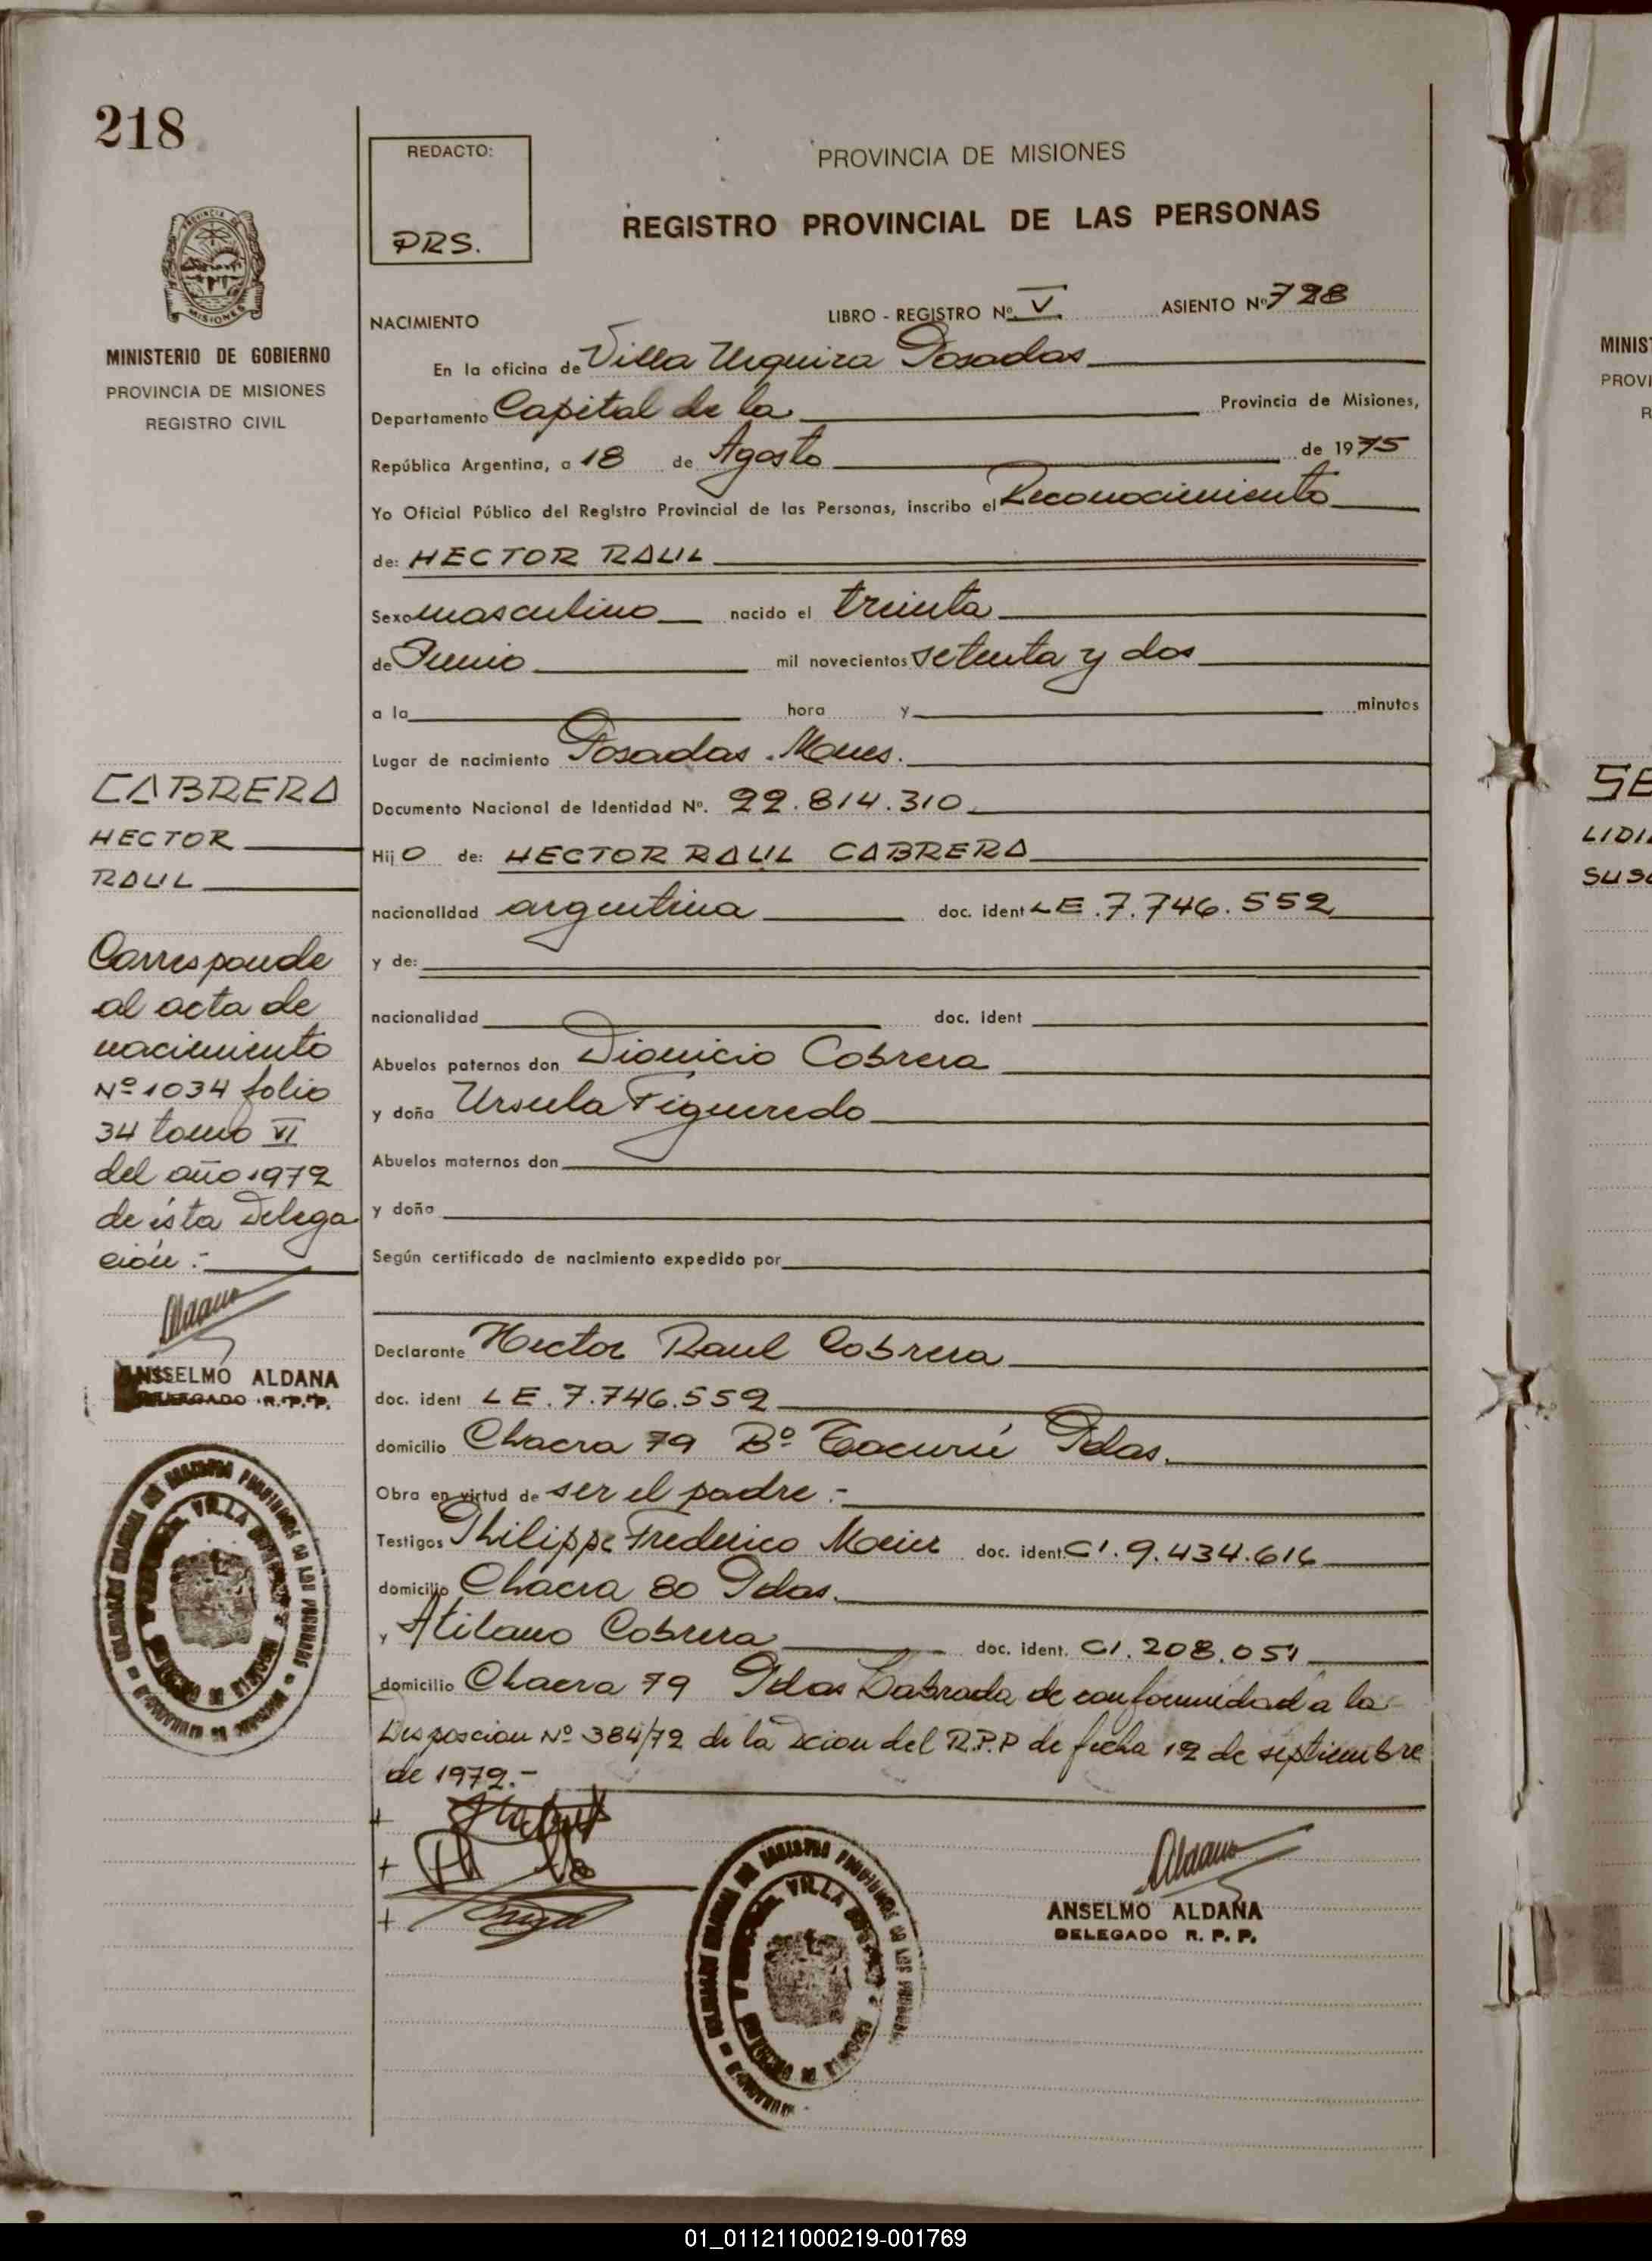 218
REDACTO:
PRS.
PROVINCIA DE MISIONES
REGISTRO PROVINCIAL DE LAS PERSONAS
MISIONES
MINISTERIO DE GOBIERNO
PROVINCIA DE MISIONES
REGISTRO CIVIL
NACIMIENTO
LIBRO - REGISTRO Nº. V ASIENTO Nº 728
En la oficina de Villa Urquiza Posadas
Departamento Capital de la Provincia de Misiones,
República Argentina, a 18 de Agosto de 1975
Yo Oficial Público del Registro Provincial de las Personas, inscribo el Reconocimiento
de: HECTOR RAUL
Sexo masculino nacido el treinta
de Junio mil novecientos setenta y dos
a la hora y minutos
Lugar de nacimiento Posadas. Mnes.
Documento Nacional de Identidad Nº. 22.814.310
Hijo de: HECTOR RAUL CABRERA
nacionalidad argentina doc. ident LE.7.746.552
y de:
nacionalidad doc. ident
Abuelos paternos don Dionicio Cabrera
y doña Ursula Figueredo
Abuelos maternos don
y doña
Según certificado de nacimiento expedido por
Declarante Hector Raul Cabrera
doc. ident LE.7.746.552
domicilio Chacra 79 Bº Tacurú Pdas.
Obra en virtud de ser el padre.-
Testigos Philippe Frederico Meier doc. ident. CI.9.434.616
domicilio Chacra 80 Pdas.
y Atilano Cabrera doc. ident. CI.208.051
domicilio Chacra 79 Pdas Labrada de conformidad a la
Disposcion Nº 384/72 de la Dcion del R.P.P de fecha 12 de septiembre
de 1972.-
CABRERA
HECTOR
RAUL
Corresponde
al acta de
nacimiento
Nº 1034 folio
34 tomo VI
del año 1972
de ésta Delega
ción.-
ANSELMO ALDANA
DELEGADO R.P.P.
VILLA
ANSELMO ALDANA
DELEGADO R. P. P.
VILLA
MINIS
PROVI
R
SE
LIDI
SUS
01_011211000219-001769